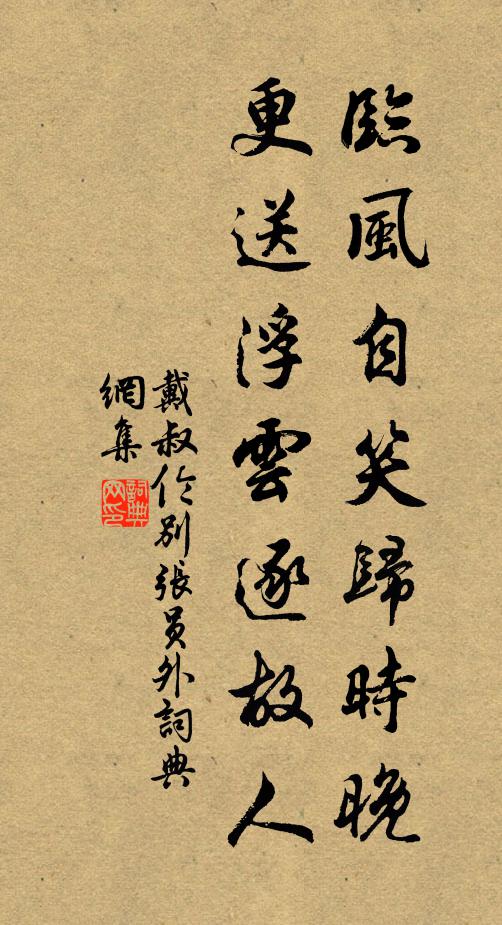 臨風自笑歸時晚
更送浮雲逐故人
戴叔伦别張员外詞典
網集
詞典
网印